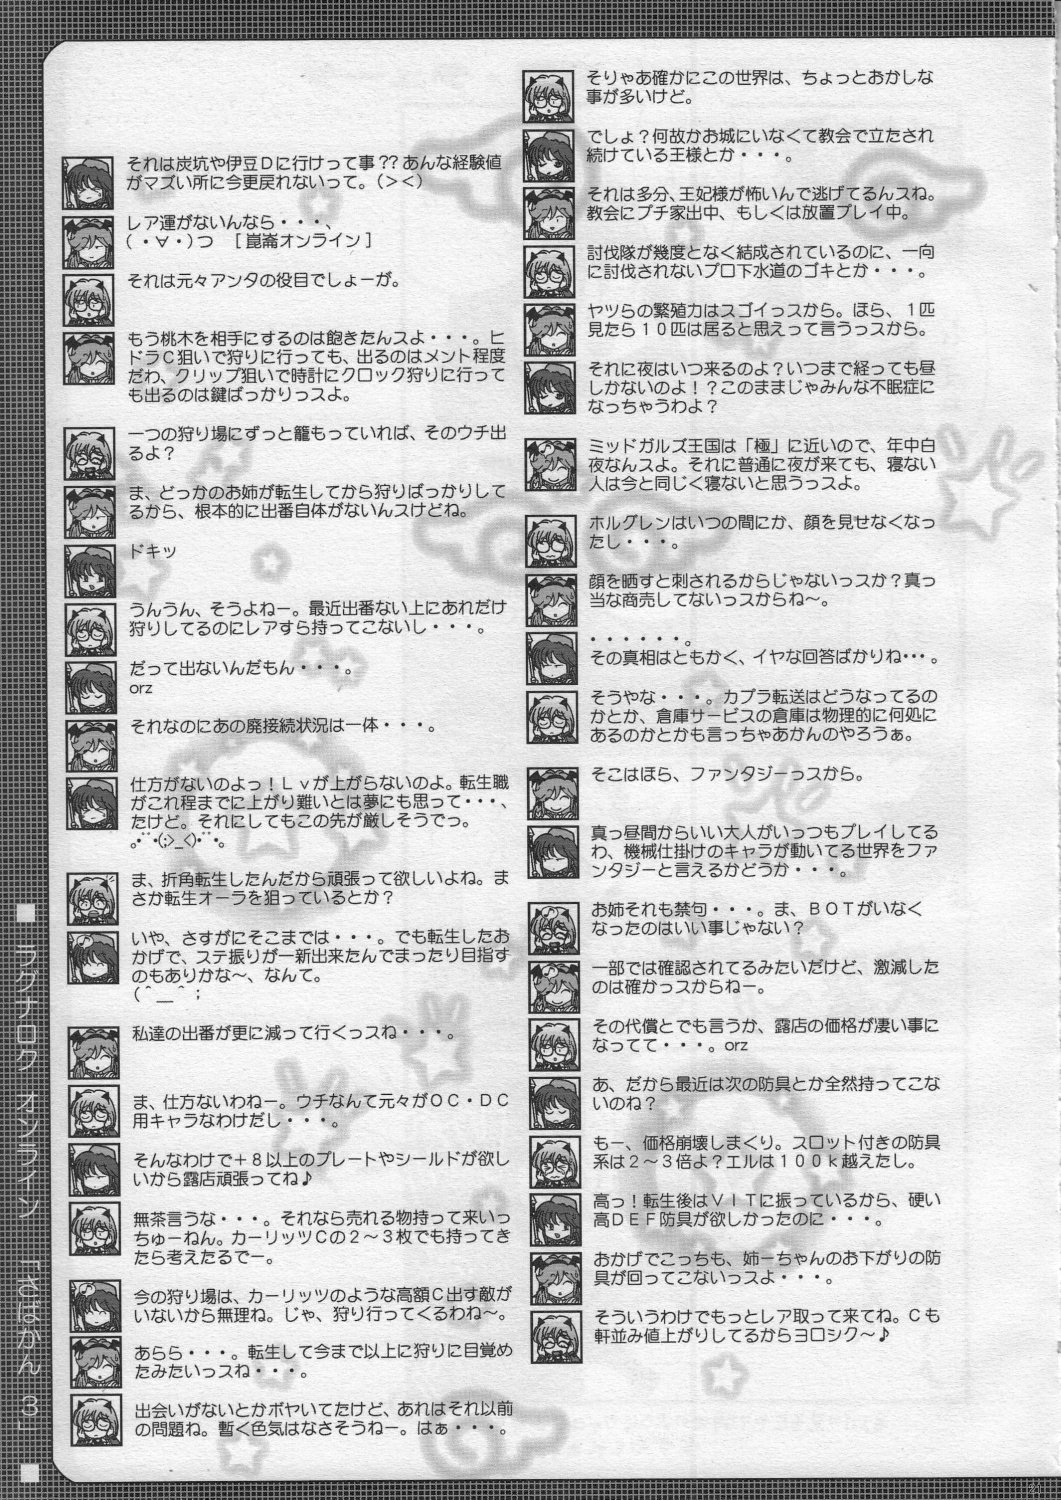 それは炭坑や伊豆Ｄに行けって事？？あんな経験値
がマズい所に今更戻れないって。（＞＜）
レア運がないんなら・・・、
（・∀・）つ　［崑崙オンライン］
それは元々アンタの役目でしょーが。
もう桃木を相手にするのは飽きたんスよ・・・。ヒ
ドラＣ狙いで狩りに行っても、出るのはメント程度
だわ、クリップ狙いで時計にクロック狩りに行って
も出るのは鍵ばっかりっスよ。
一つの狩り場にずっと籠もっていれば、そのウチ出
るよ？
ま、どっかのお姉が転生してから狩りばっかりして
るから、根本的に出番自体がないんスけどね。
ドキッ
うんうん、そうよねー。最近出番ない上にあれだけ
狩りしてるのにレアすら持ってこないし・・・。
だって出ないんだもん・・・。
orz
それなのにあの廃接続状況は一体・・・。
仕方がないのよっ！Ｌｖが上がらないのよ。転生職
がこれ程までに上がり難いとは夢にも思って・・・、
たけど。それにしてもこの先が厳しそうでっ。
｡･ﾟﾟ･(;>_<)･ﾟﾟ･｡
ま、折角転生したんだから頑張って欲しいよね。ま
さか転生オーラを狙っているとか？
いや、さすがにそこまでは・・・。でも転生したお
かげで、ステ振りが一新出来たんでまったり目指す
のもありかな～、なんて。
（＾＿＾；
私達の出番が更に減って行くっスね・・・。
ま、仕方ないわねー。ウチなんて元々がＯＣ・ＤＣ
用キャラなわけだし・・・。
そんなわけで＋８以上のプレートやシールドが欲し
いから露店頑張ってね♪
無茶言うな・・・。それなら売れる物持って来いっ
ちゅーねん。カーリッツＣの２～３枚でも持ってき
たら考えたるでー。
今の狩り場は、カーリッツのような高額Ｃ出す敵が
いないから無理ね。じゃ、狩り行ってくるわね～。
あらら・・・。転生して今まで以上に狩りに目覚め
たみたいっスね・・・。
出会いがないとかボヤいてたけど、あれはそれ以前
の問題ね。暫く色気はなさそうねー。はぁ・・・。
そりゃあ確かにこの世界は、ちょっとおかしな
事が多いけど。
でしょ？何故かお城にいなくて教会で立たされ
続けている王様とか・・・。
それは多分、王妃様が怖いんで逃げてるんスね。
教会にプチ家出中、もしくは放置プレイ中。
討伐隊が幾度となく結成されているのに、一向
に討伐されないプロ下水道のゴキとか・・・。
ヤツらの繁殖力はスゴイっスから。ほら、１匹
見たら１０匹は居ると思えって言うっスから。
それに夜はいつ来るのよ？いつまで経っても昼
しかないのよ！？このままじゃみんな不眠症に
なっちゃうわよ？
ミッドガルズ王国は「極」に近いので、年中白
夜なんスよ。それに普通に夜が来ても、寝ない
人は今と同じく寝ないと思うっスよ。
ホルグレンはいつの間にか、顔を見せなくなっ
たし・・・。
顔を晒すと刺されるからじゃないっスか？真っ
当な商売してないっスからね～。
・・・・・・。
その真相はともかく、イヤな回答ばかりね･･･。
そうやな・・・。カプラ転送はどうなってるの
かとか、倉庫サービスの倉庫は物理的に何処に
あるのかとかも言っちゃあかんのやろうぁ。
そこはほら、ファンタジーっスから。
真っ昼間からいい大人がいっつもプレイしてる
わ、機械仕掛けのキャラが動いてる世界をファ
ンタジーと言えるかどうか・・・。
お姉それも禁句・・・。ま、ＢＯＴがいなく
なったのはいい事じゃない？
一部では確認されてるみたいだけど、激減した
のは確かっスからねー。
その代償とでも言うか、露店の価格が凄い事に
なってて・・・。orz
あ、だから最近は次の防具とか全然持ってこな
いのね？
もー、価格崩壊しまくり。スロット付きの防具
系は２～３倍よ？エルは１００ｋ越えたし。
高っ！転生後はＶＩＴに振っているから、硬い
高ＤＥＦ防具が欲しかったのに・・・。
おかげでこっちも、姉ーちゃんのお下がりの防
具が回ってこないっスよ・・・。
そういうわけでもっとレア取って来てね。Ｃも
軒並み値上がりしてるからヨロシク～♪
■ ラグナロク オンライン 「さばかん ３」 ■
21